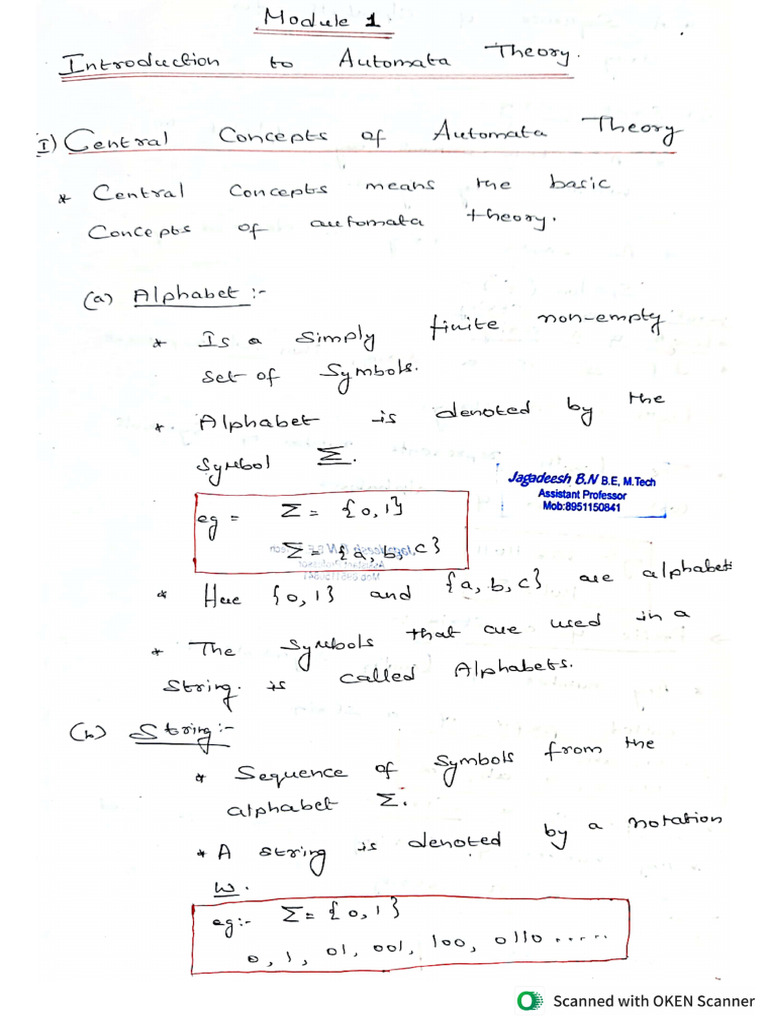 Module 1.
Introduction to Automata Theory.
I) Central Concepts of Automata Theory
* Central Concepts means the basic
Concepts of automata theory.
(a) Alphabet :-
* Is a simply finite non-empty
set of Symbols.
* Alphabet is denoted by the
Symbol Σ.
Jagadeesh B.N B.E, M.Tech
Assistant Professor
Mob:8951150841
eg = Σ = {0,1}
Σ = {a, b, c}
* Here {0,1} and {a, b, c} are alphabet
* The Symbols that are used in a
String. is called Alphabets.
(b) String :-
* Sequence of Symbols from the
alphabet Σ.
* A string is denoted by a notation
w.
eg:- Σ = {0,1}
0, 1, 01, 001, 100, 0110 .....
Scanned with OKEN Scanner